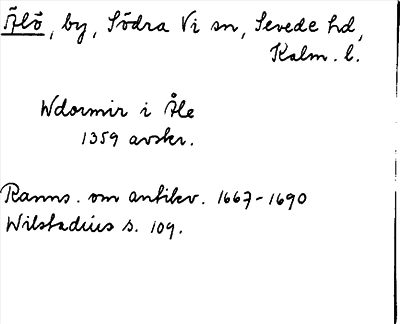 Ålö, by, Södra Vi sn, Sevede hd,
Kalm. l.
Wdormir i Åle
1359 avskr.
Ranns. om antikv. 1667-1690
Wilstadius s. 109.